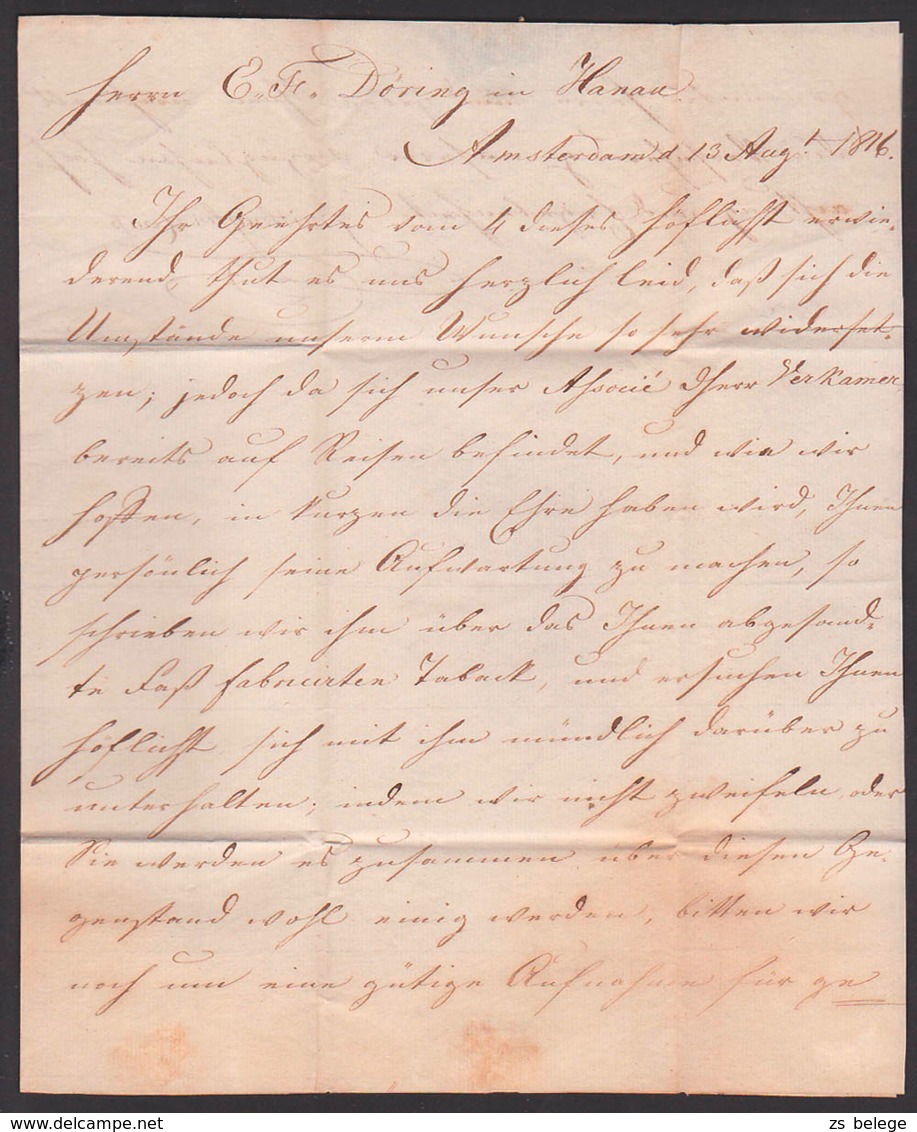 Herrn E. Fr. Döring in Hanau.
Amsterdam d 13 Augt 1816.
Ihr Geehrtes vom 4 dieses höflichst erwie-
derend, thut es uns herzlich leid, daß sich die
Umstände unserm Wunsche so sehr widerset-
zen; jedoch da sich unser Associé Herr Verkamer
bereits auf Reisen befindet, und wie wir
hoffen, in kurzen die Ehre haben wird, Ihnen
persönlich seine Aufwartung zu machen, so
schrieben wir ihm über das Ihnen abgesand-
te Faß fabricirten Taback, und ersuchen Ihnen
höflichst, sich mit ihm mündlich darüber zu
unterhalten; indem wir nicht zweifeln, oder
Sie werden es zusammen über diesen Ge-
genstand wohl einig werden, bitten wir
noch um eine gütige Aufnahme für ge
zs belege